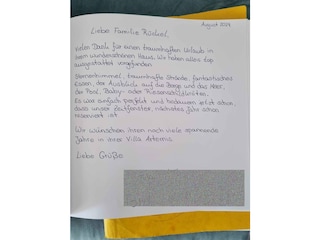 August 2024
Liebe Familie Rückel,
vielen Dank für einen traumhaften Urlaub in
ihrem wunderschönen Haus. Wir haben alles top
ausgestattet vorgefunden.
Sternenhimmel, traumhafte Strände, fantastisches
Essen, der Ausblick auf die Berge und das Meer,
der Pool, Baby- oder Riesenschildkröten.
Es war einfach perfekt und bedauern jetzt schon,
dass unser Zeitfenster, nächstes Jahr schon
reserviert ist.
Wir wünschen ihnen noch viele spannende
Jahre in ihrer Villa Artemis.
Liebe Grüße